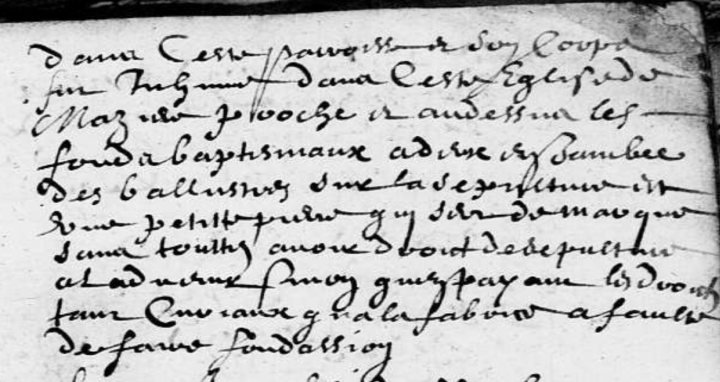 dans Ceste paroisse et son Corps
fut Inhumé dans Ceste Eglise de
Maziere proche et audessus les
fonds baptismaux a deux enjambee
des ballustres sur la sepulture est
une petitte piere qui sert de marque
sans touttes avoir droict de sepulture
a Ladvenir sinon quen payant les droicts
tant Curiaux qua la fabrice a faulte
de faire fondassion